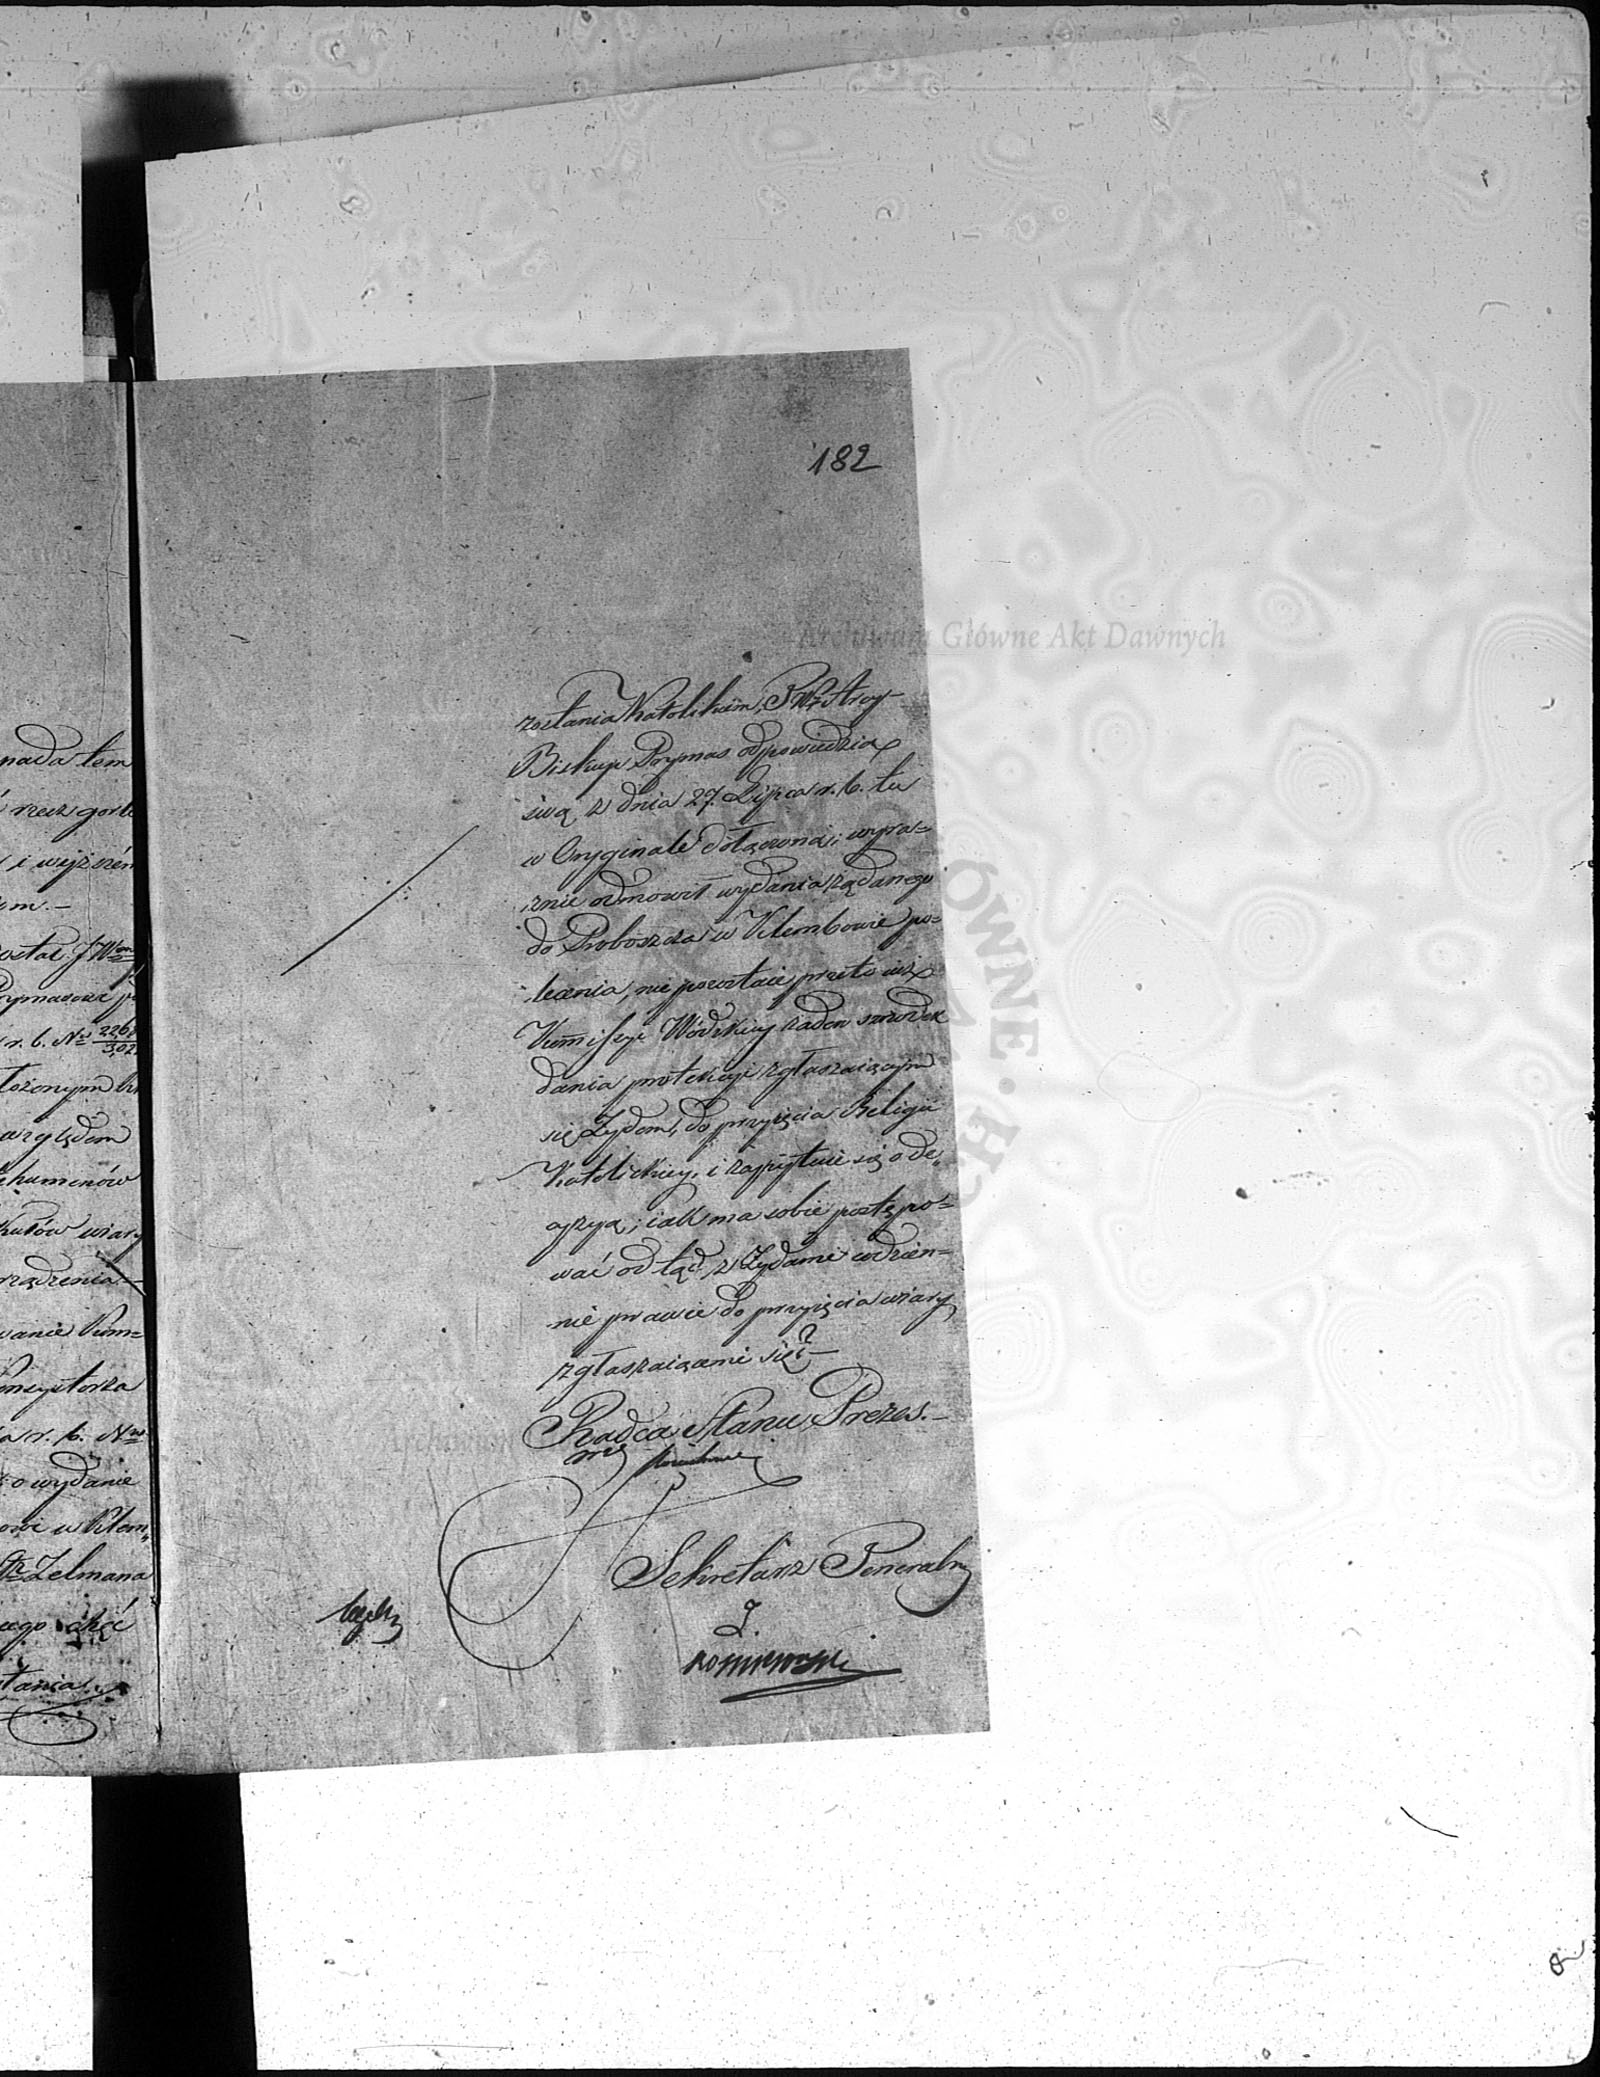 182
Archiwum Główne Akt Dawnych
zostania Katolikiem, JW. Arcy-
Biskup Prymas odpowiedzią
swą z dnia 27. Lipca r. b. tu
w Oryginale dołączoną; wyra-
znie odmówił wydania żądanego
do Proboszcza w Klembowie po-
lecenia, nie pozostaie przeto iuż
Kommissyi Wódzkiey żaden srzodek
dania protekcyi zgłaszaiącym
się Żydom, do przyięcia Religii
Katolickiey, i zapytuie się o de„
cyzyą; iak ma sobie postępo-
wać odtąd z Żydami codzien-
nie prawie do przyięcia wiary
zgłaszaiącemi się?—
Radca Stanu Prezes.—
Sekretarz Generalny
nada tem
rzecz
i weyrzen
em.—
został JW
Prymasowi
r. b. Nro
łożonym
względem
chumenów
wiary
rządzenia.—
wanie Kom=
onsystorza
r. b. Nro
o wydanie
owi w Klem„
Zelmana
iego chęć
stania